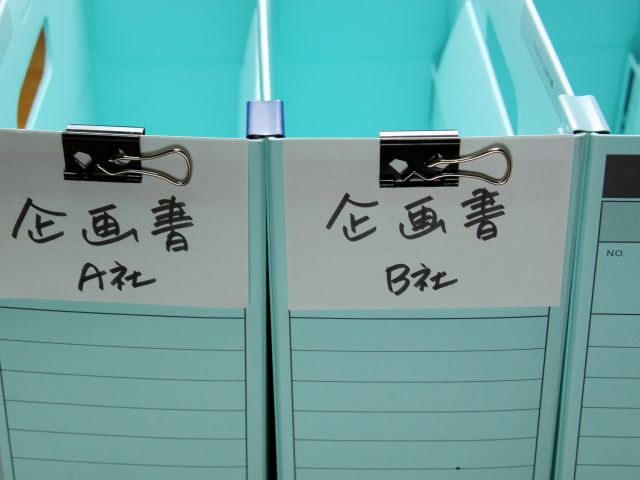 企画書
A社
企画書
B社
NO.